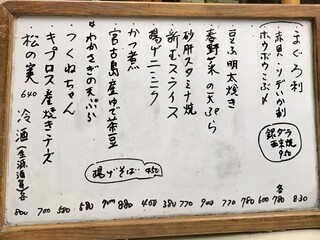 ・まぐろ刺 830
・赤貝・ソデいか刺 各780
・ホウボウこぶ〆 780
銀ダラ西京焼 950
・豆ふ明太焼き 600
・春野菜の天ぷら 780
・砂肝スタミナ焼 770
・新むスライス 380
・揚げニンニク 460
・かつ煮 880
・宮古島産ゆで茶豆 700
・わかさぎの天ぷら 680
・つくねちゃん 580
・キプロス産焼きチーズ 700
・松の実 640
冷酒 800
揚げそば 450